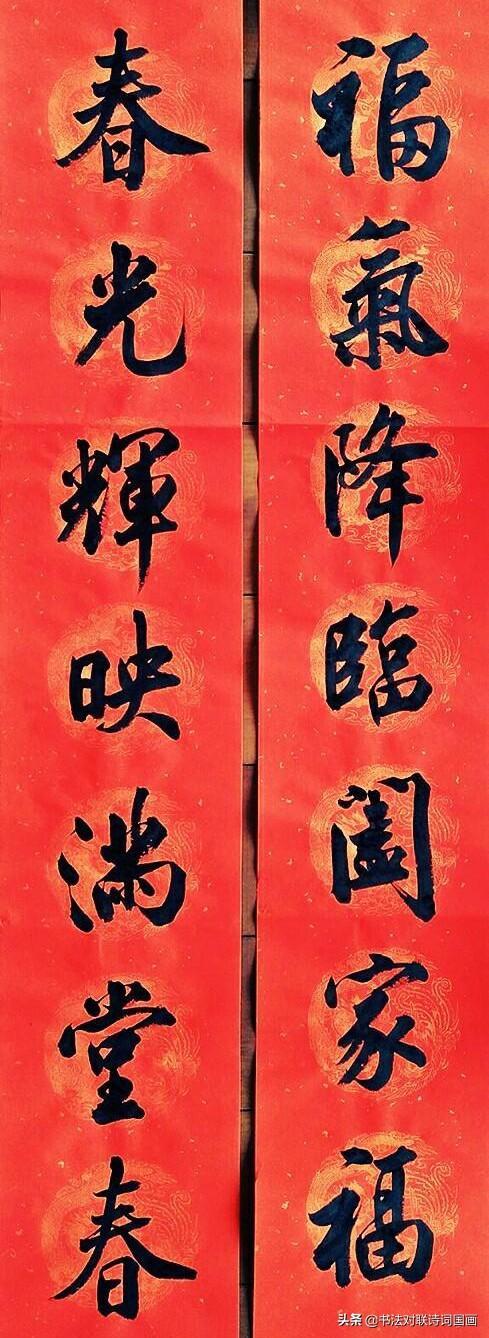 福氣降臨闔家福
春光輝映滿堂春
头条 @书法对联诗词国画